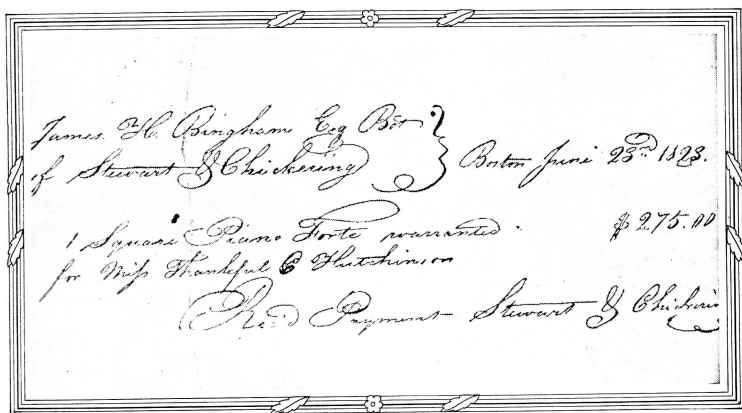 James H. Bingham Esq Bot
of Stewart & Chickering
Boston June 23rd 1823.
1 Square Piano Forte warranted $275.00
for Miss Thankful C Hutchinson
Rec'd Payment Stewart & Chickerin